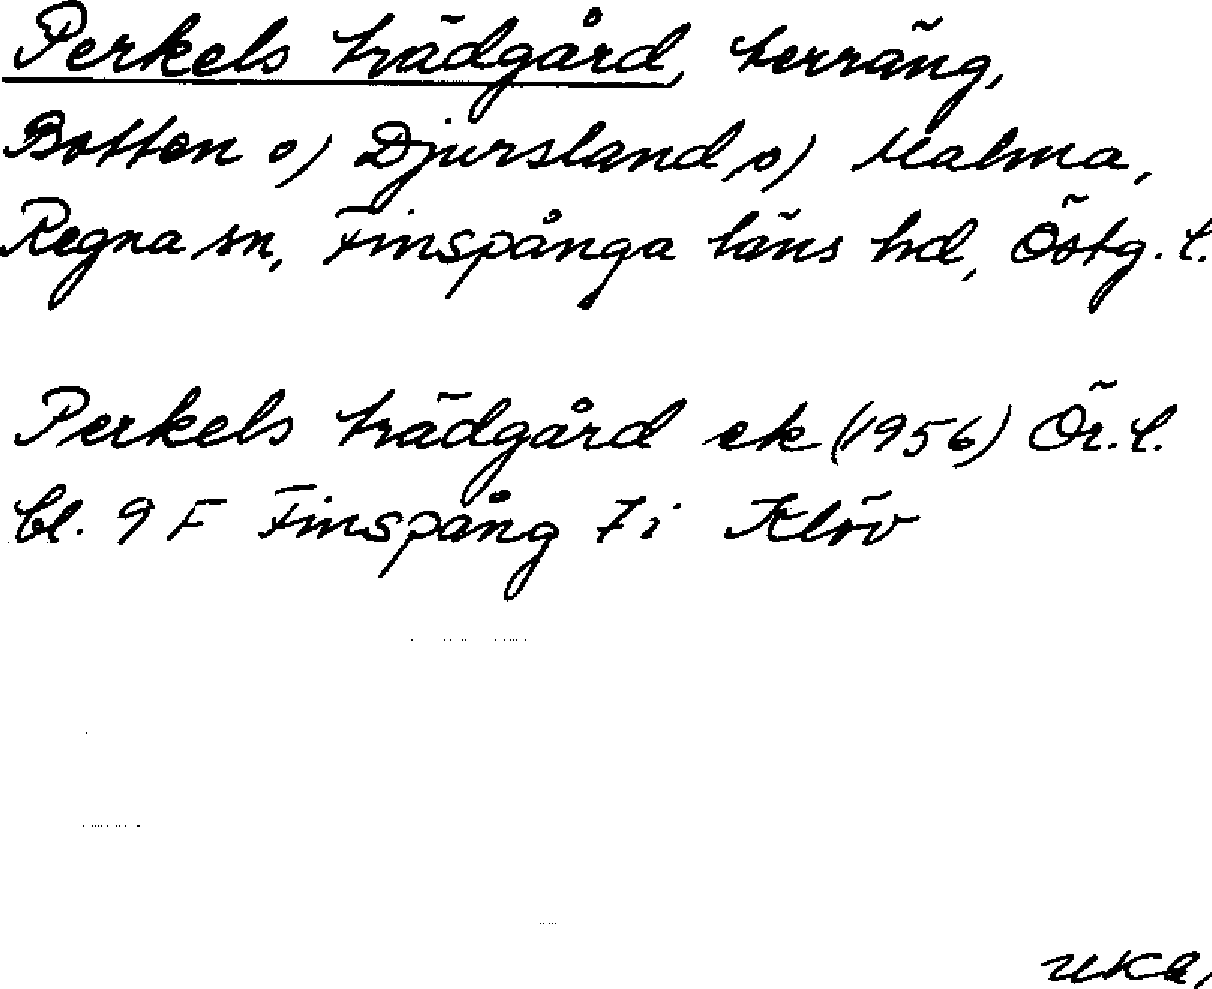 Perkels trädgård, terräng,
Botten o) Djursland, o) Malma,
Regna sn, Finspånga läns hd, Östg. l.
Perkels trädgård ek (1956) Ör. l.
bl. 9 F Finspång 7 i Klöv